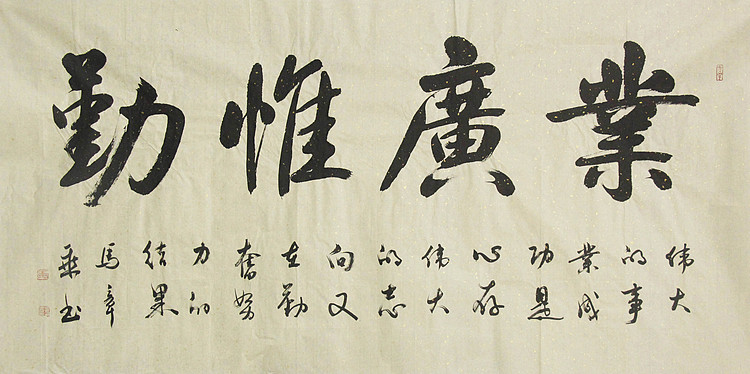 業廣惟勤
伟大
的事
業成
功是
心存
伟大
的志
向又
在勤
奮努
力的
结果
馬章
乘书